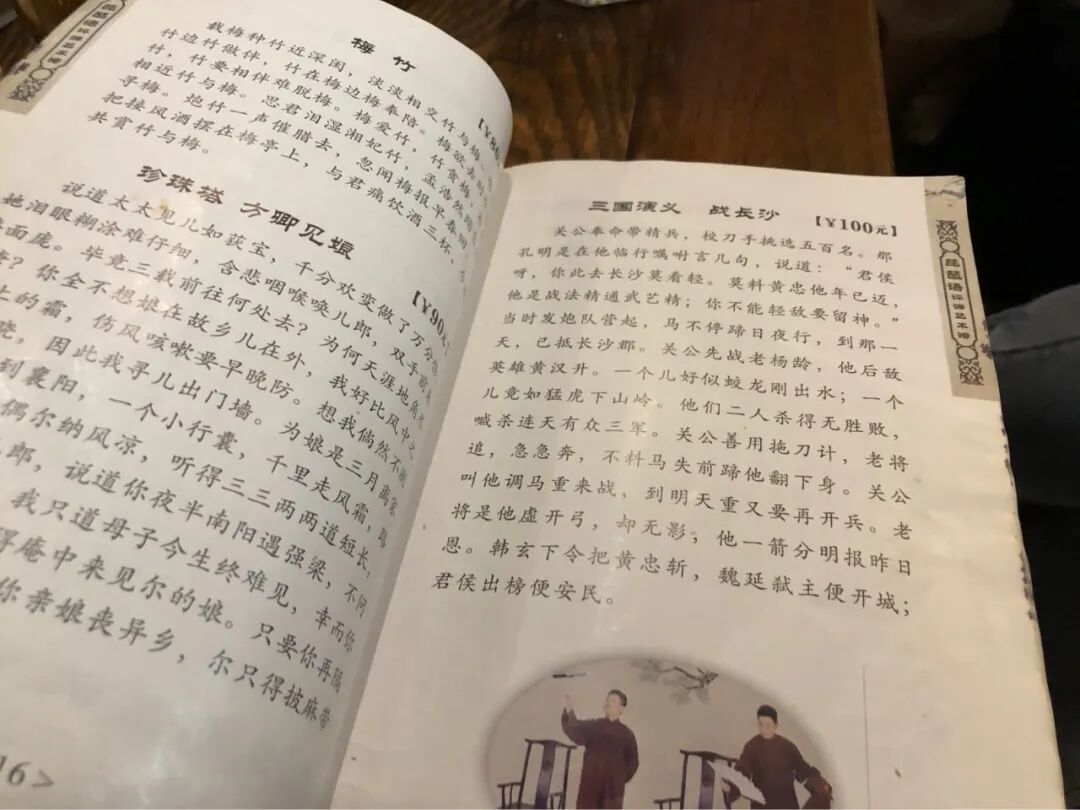 梅竹
【¥80
栽梅种竹近深闺，淡淡相交竹与梅
竹边竹做伴，竹在梅边梅奉陪。梅欲去
竹，竹要相伴难脱梅。梅爱竹，竹贪梅，
相近竹与梅。思君泪湿湘妃竹，孟浩然踏
寻梅。炮竹一声催腊去，忽闻梅报早春
把接风酒摆在梅亭上，与君痛饮酒三杯，
共赏竹与梅。
珍珠塔 方卿见娘
【¥90
说道太太见儿如获宝，千分欢变做了万分
她泪眼糊涂难仔细，含悲咽喉唤儿郎，双手
面庞。毕竟三载前往何处去？为何天涯地角
？你全不想娘在故乡儿在外，我好比风中
上的霜，伤风咳嗽要早晚防。想我倘然不
晓，因此我寻儿出门墙。为娘是三月离家
到襄阳，一个小行囊，千里走风霜，
偶尔纳风凉，听得三三两两道短长，
郎，说道你夜半南阳遇强梁，不问
我只道母子今生终难见，幸而你
得庵中来见尔的娘。只要你再隔
你亲娘丧异乡，尔只得披麻带
16>
三国演义 战长沙
【¥100元】
关公奉命带精兵，校刀手挑选五百名。那
孔明是在他临行嘱咐言几句，说道：“君侯
呀，你此去长沙莫看轻。莫料黄忠他年已迈，
他是战法精通武艺精；你不能轻敌要留神。”
当时发炮队营起，马不停蹄日夜行，到那一
天，已抵长沙郡。关公先战老杨龄，他后敌
英雄黄汉升。一个儿好似蛟龙刚出水；一个
儿竟如猛虎下山岭。他们二人杀得无胜败，
喊杀连天有众三军。关公善用拖刀计，老将
追，急急奔，不料马失前蹄他翻下身。关公
叫他调马重来战，到明天重又要再开兵。老
将是他虚开弓，却无影，他一箭分明报昨日
恩。韩玄下令把黄忠斩，魏延弑主便开城；
君侯出榜便安民。
琵琶语评弹艺术馆